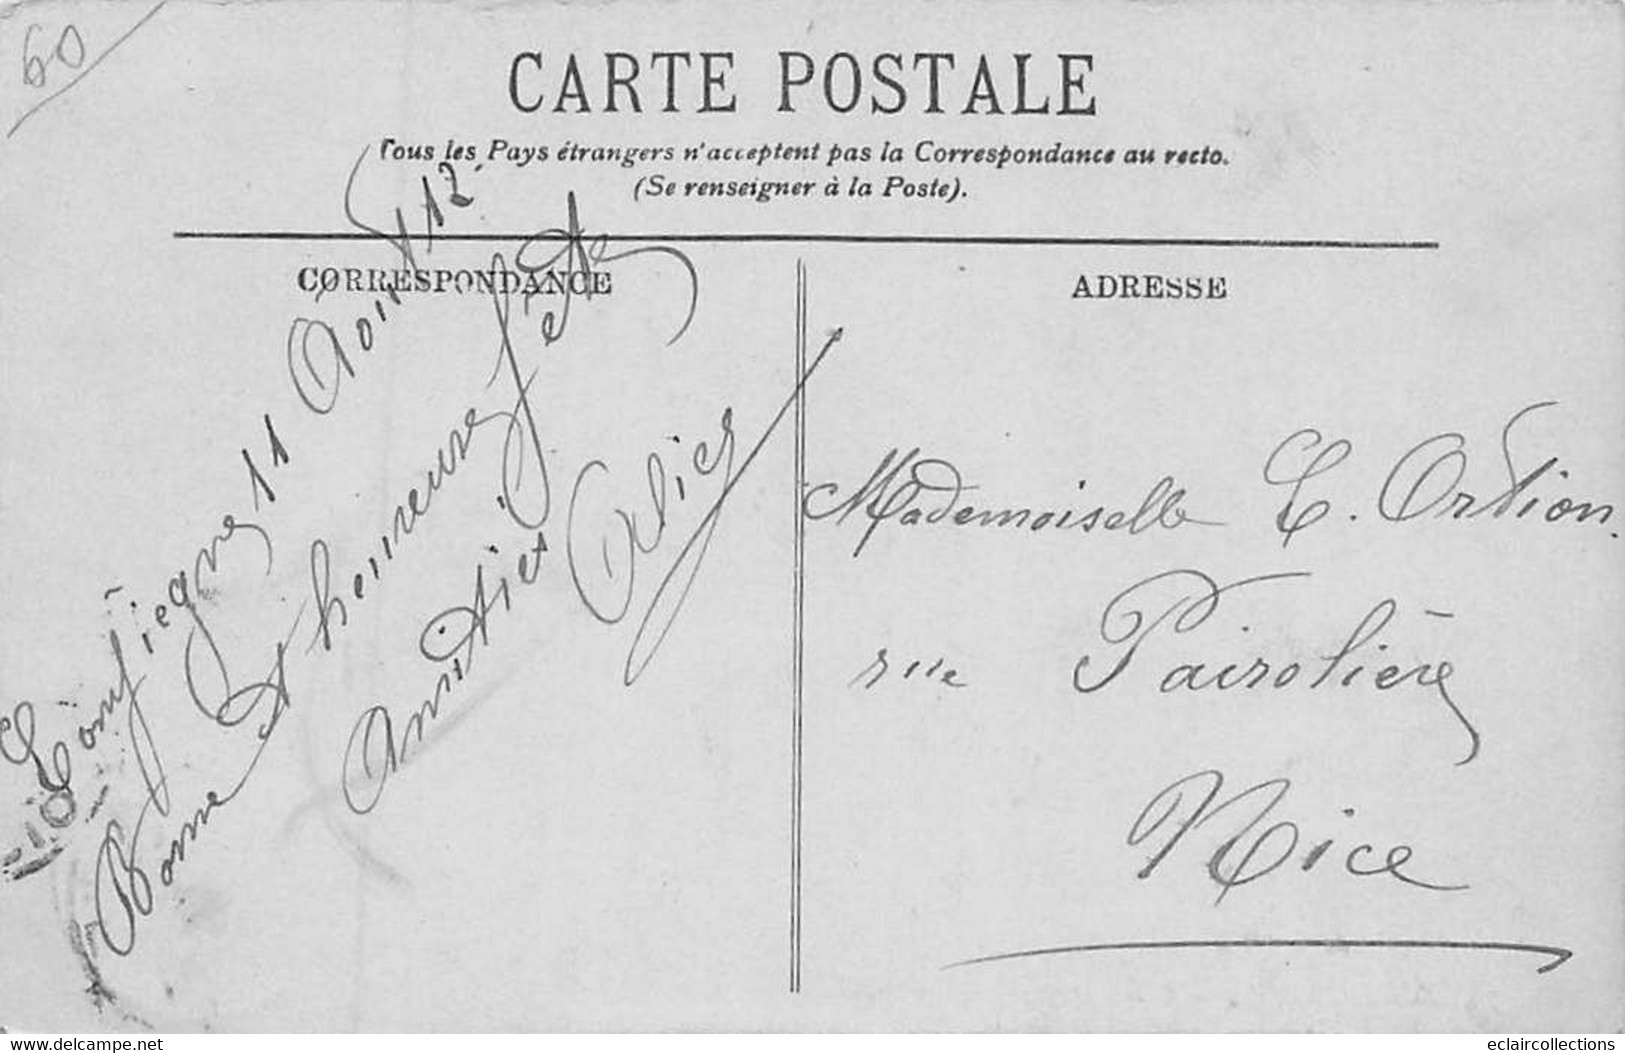 60
CARTE POSTALE
Tous les Pays étrangers n'acceptent pas la Correspondance au recto.
(Se renseigner à la Poste).
CORRESPONDANCE
Compiegne 11 Août 12.
Bonne et heureuse fête
Amitiés Alice
ADRESSE
Mademoiselle E. Ordion.
rue Pairolière
Nice
www.delcampe.net
eclaircollections